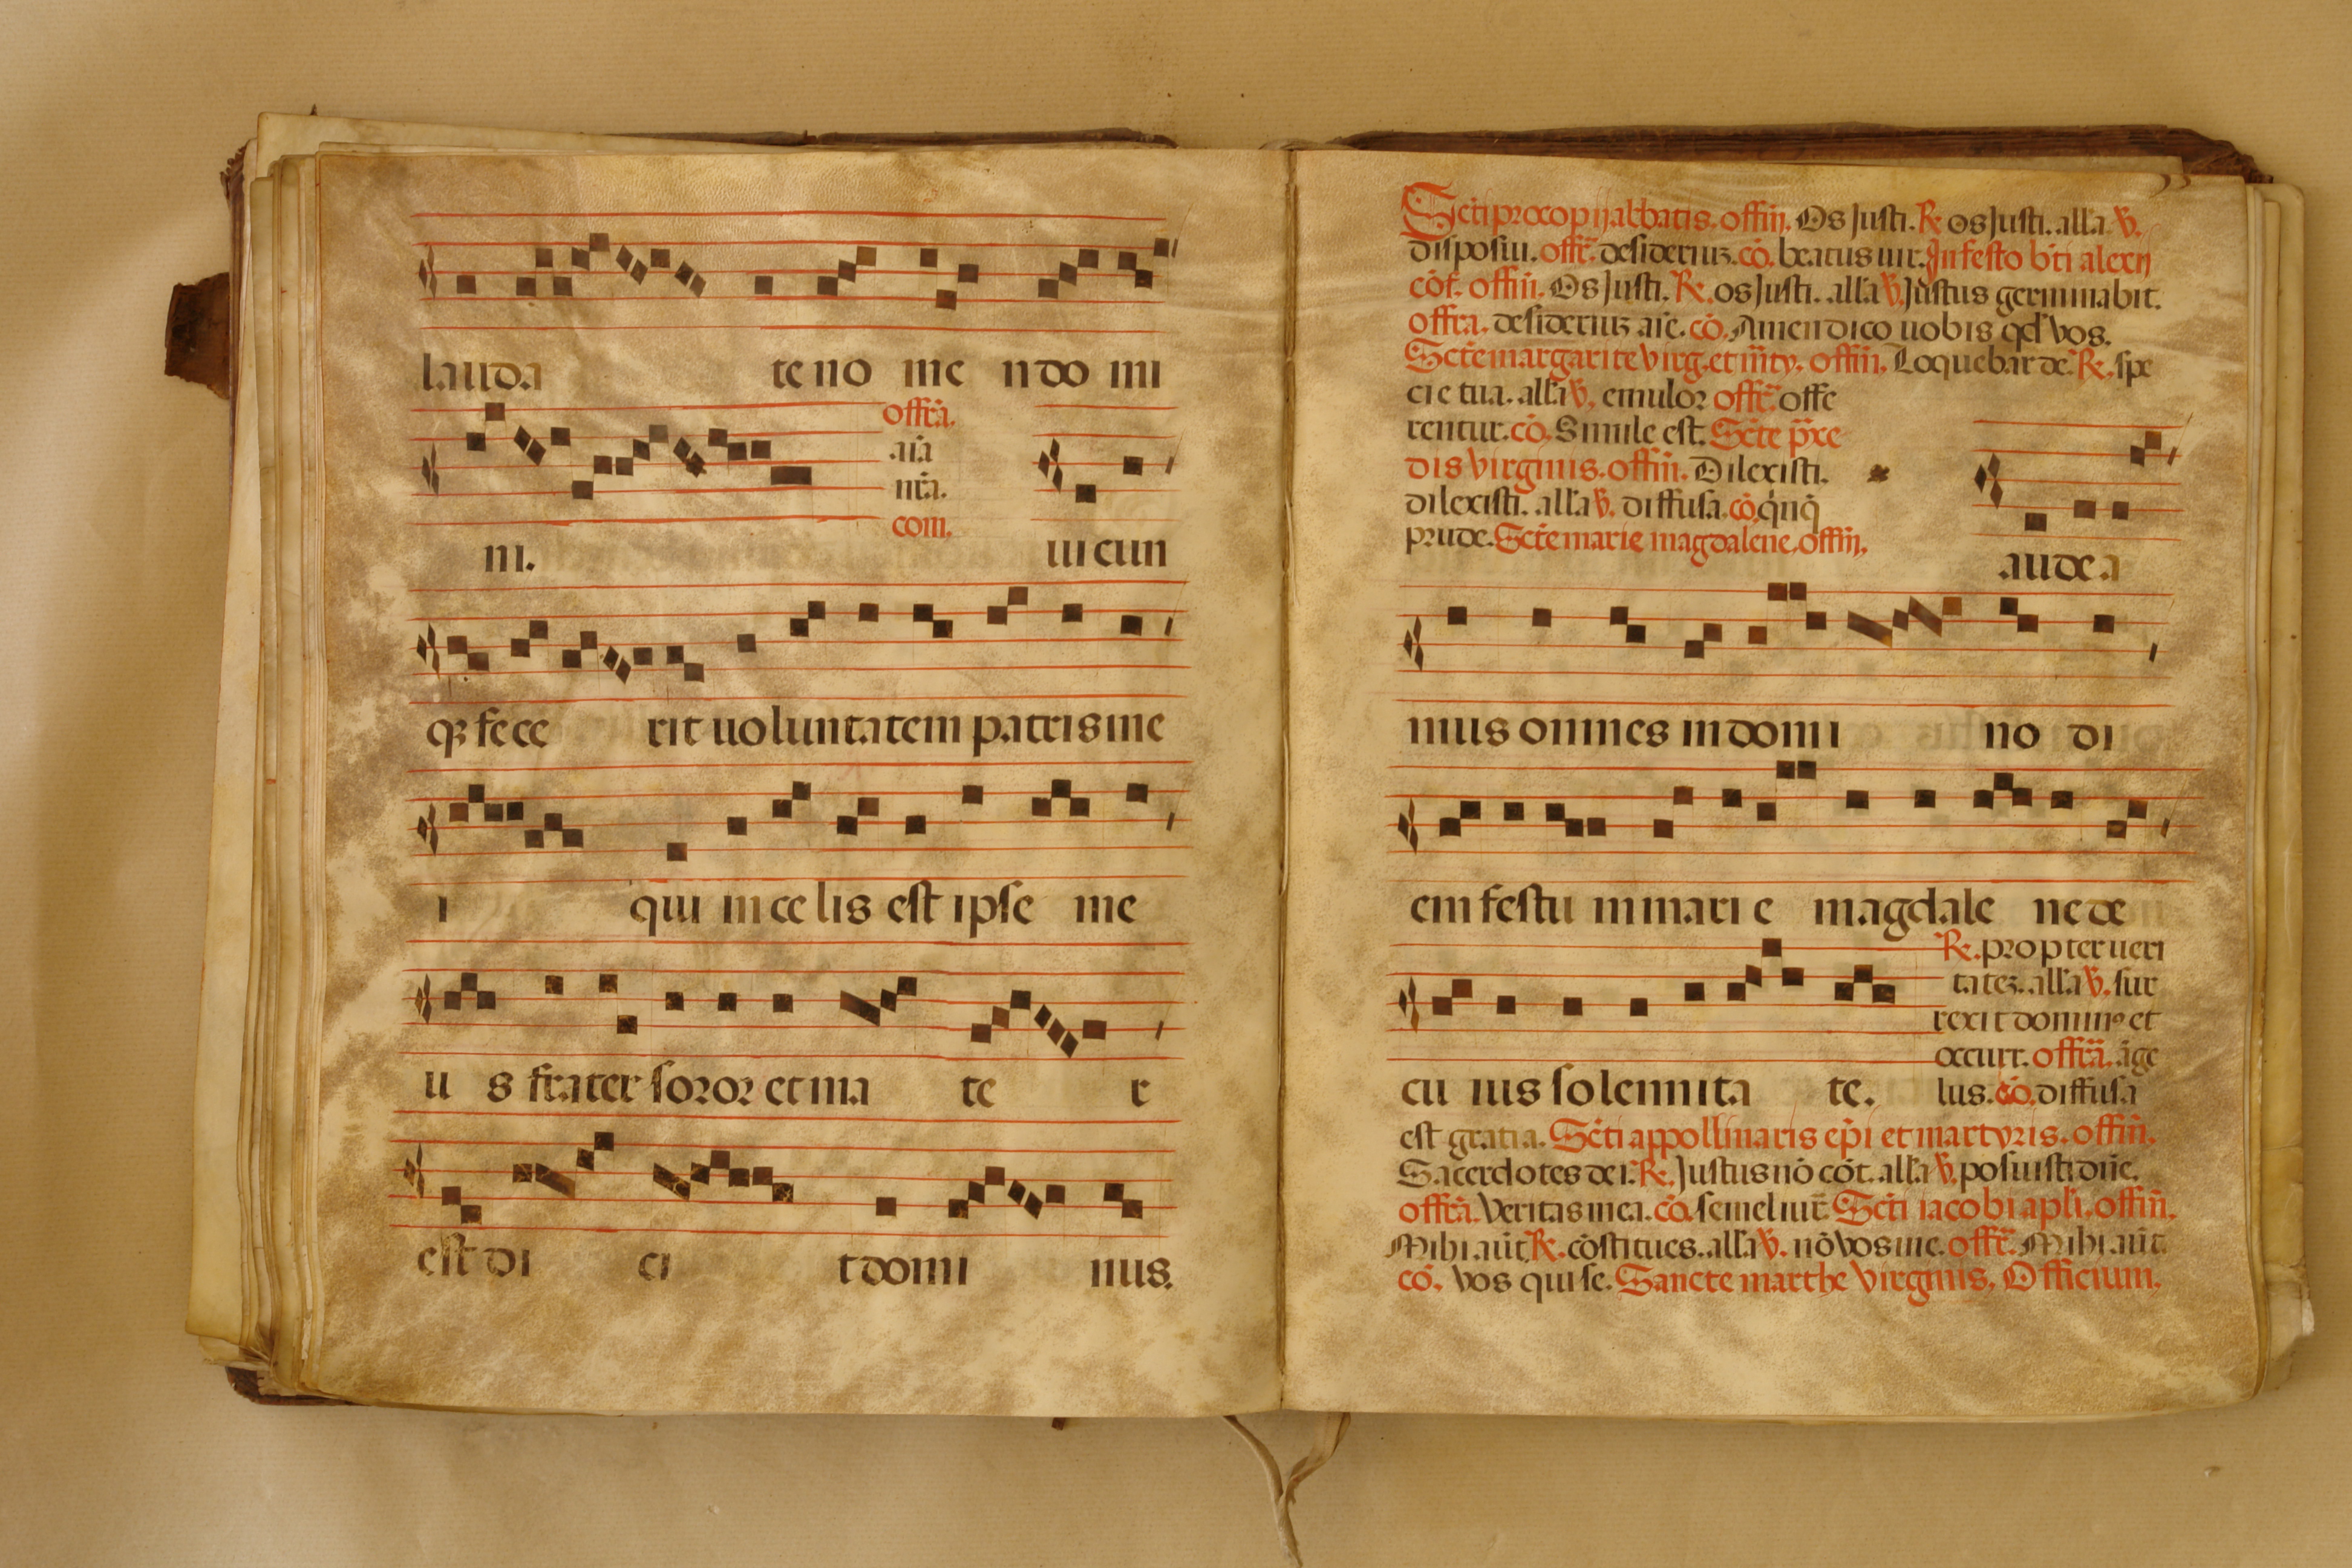 lauda te no me n do mi
offr̄a.
aīa
nr̄a.
com.
ni. uicun
qȝ fece rit uoluntatem patris me
i qui in ce lis est ipse me
u s frater soror et ma te r
est di ci t domi nus.
Scti procopij abbatis. offiñ. Os Justi. R. os Justi. alla. v.
disposui. offr̄. desideriuȝ. cō. beatus uir. In festo bti alexij
cōf. offiñ. Os Justi. R. os Justi. alla v. Justus germinabit.
offra. desideriuȝ aīe. cō. Amen dico uobis qd vos.
Scte margarite virg. et m̄ty. offiñ. Loquebar de. R. spe
cie tua. alla v. emulor offr̄. offe
rentur. cō. Simile est. Scte p̄xe
dis virginis. offiñ. Dilexisti.
dilexisti. alla v. diffusa. cō. qnq̄
prude. Scte marie magdalene. offiñ.
audea
mus omnes in domi no di
em festu m mari e magdale ne de
R. propter ueri
tateȝ. alla v. sur
rexit dominꝰ et
occurr. offr̄a. āge
cu ius solennita te. lus. cō. diffusa
est gratia. Scti appollinaris ep̄i et martyris. offiñ.
Sacerdotes dei. R. Justus nō cōt. alla v. posuisti dñe.
offr̄a. Veritas mea. cō. semel iur̄. Scti iacobi apli. offiñ.
Mihi aūt R. cōstitues. alla v. nō vos me. offr̄. Mihi aūt
cō. vos qui se. Sancte marthe virginis. Officium.